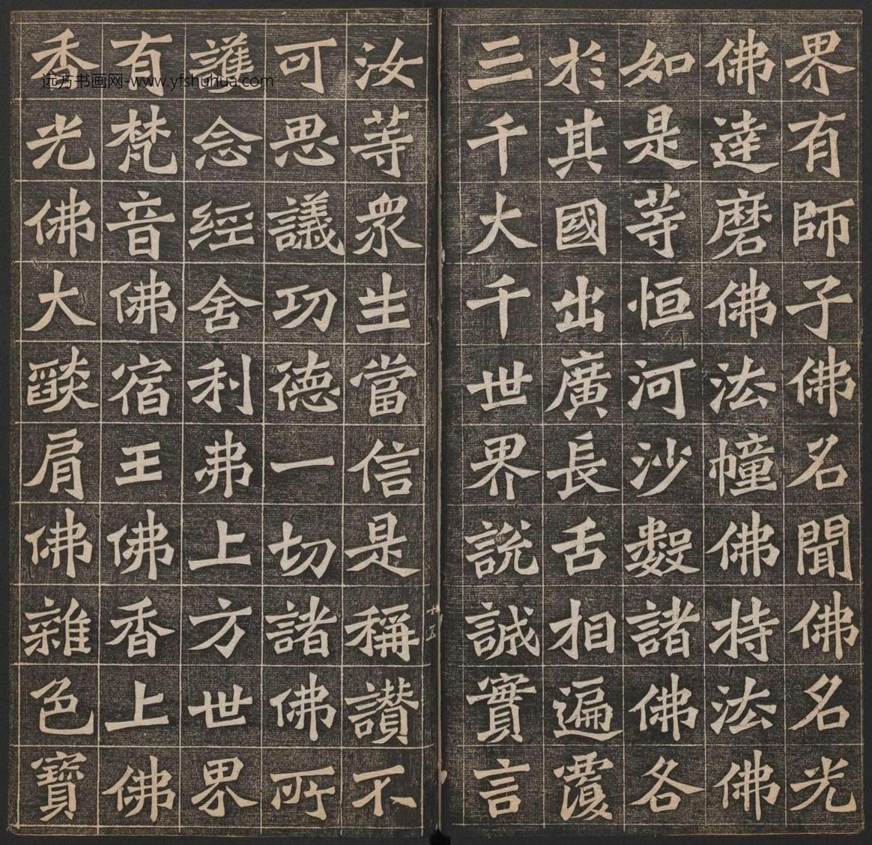 界有師子佛名聞佛名光
佛達磨佛法幢佛持法佛
如是等恒河沙數諸佛各
於其國出廣長舌相遍覆
三千大千世界說誠實言
汝等衆生當信是稱讚不
可思議功德一切諸佛所
護念經舍利弗上方世界
有梵音佛宿王佛香上佛
香光佛大燄肩佛雜色寶
远方书画网-www.yfshuhua.com